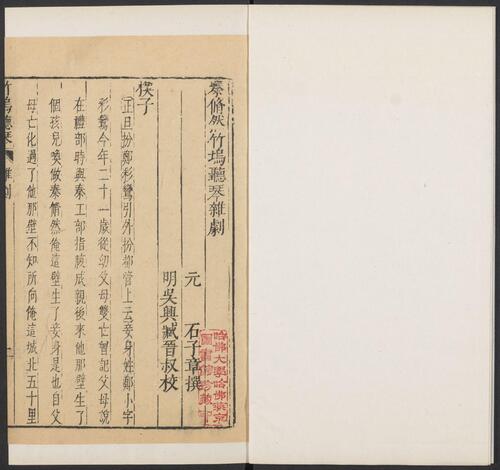 秦脩然竹塢聽琴雜劇
元 石子章撰
明吳興臧晉叔校
楔子
正旦扮鄭彩鸞引外扮都管上云妾身姓鄭小字
彩鸞今年二十一歲從幼父母雙亡曾記父母說
在禮部時與秦工部指腹成親後來他那壁生了
個孩兒喚做秦脩然俺這壁生了妾身是也自父
母亡化過了他那壁不知所向俺這城北五十里
竹塢聽琴 雜劇 一
哈佛大學哈佛燕京
圖書館珍藏